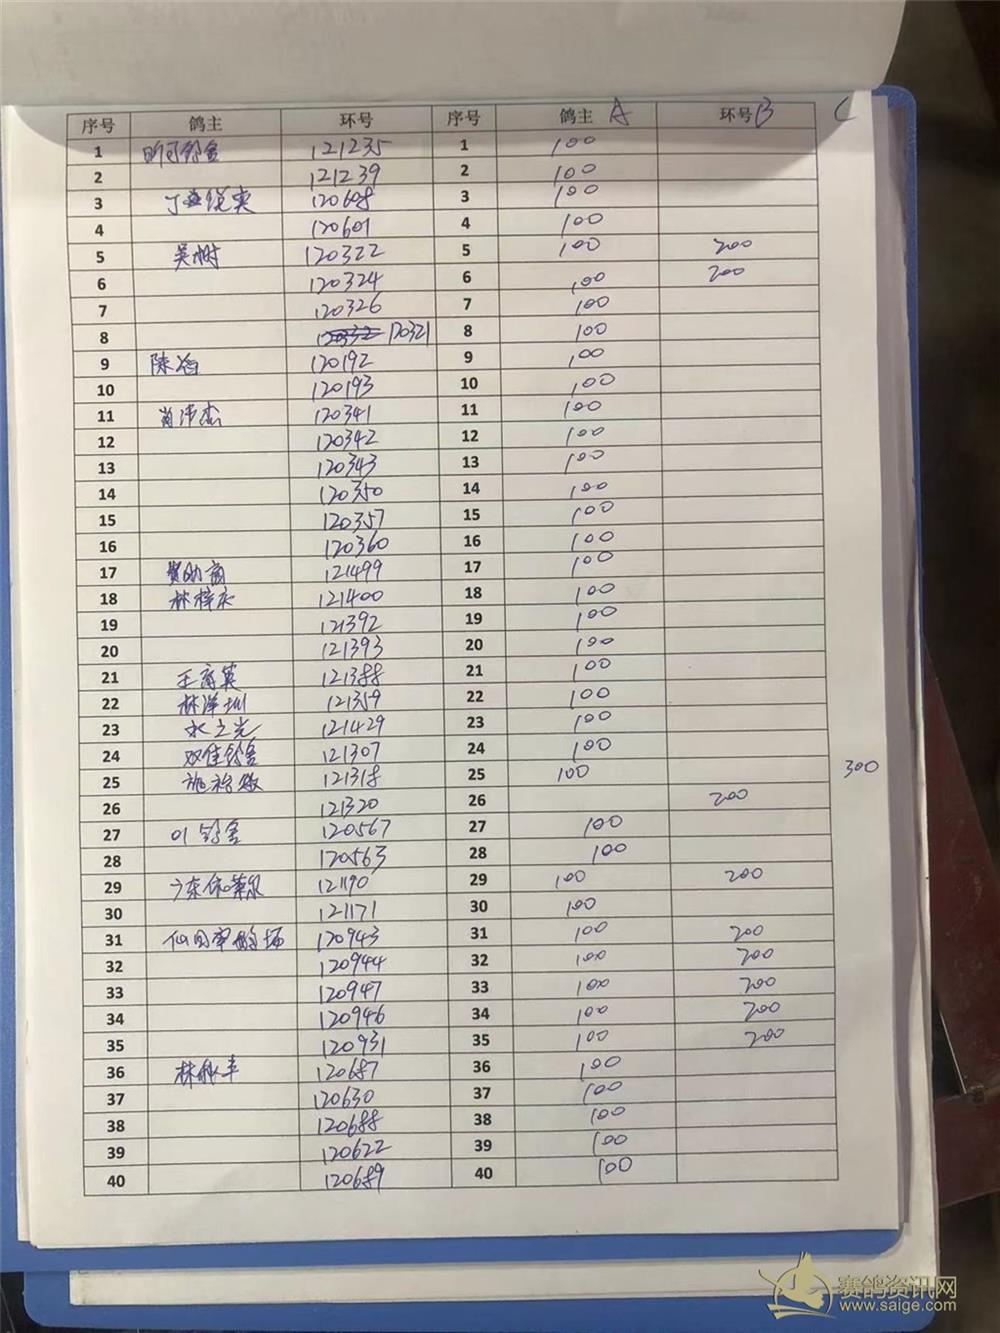 序号 鸽主 环号 序号 鸽主 A 环号 B C
1 121235 1 100
2 121239 2 100
3 120608 3 100
4 120601 4 100
5 吴树 120322 5 100 200
6 120324 6 100 200
7 120326 7 100
8 120321 8 100
9 120192 9 100
10 120193 10 100
11 肖沛杰 120341 11 100
12 120342 12 100
13 120343 13 100
14 120350 14 100
15 120357 15 100
16 120360 16 100
17 赞助商 121499 17 100
18 林梓庆 121400 18 100
19 121392 19 100
20 121393 20 100
21 121388 21 100
22 121359 22 100
23 水之光 121429 23 100
24 双佳鸽舍 121307 24 100
25 121318 25 100 300
26 121320 26 200
27 01鸽舍 120567 27 100
28 120563 28 100
29 121190 29 100 200
30 121171 30 100
31 120943 31 100 200
32 120944 32 100 200
33 120947 33 100 200
34 120946 34 100 200
35 120931 35 100 200
36 120687 36 100
37 120630 37 100
38 120688 38 100
39 120622 39 100
40 120689 40 100
赛鸽资讯网
www.saige.com